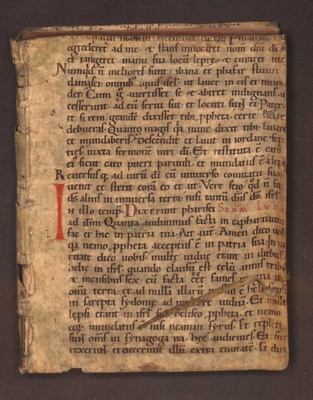 egrederet ad me & stans invocaret nom dni di
et tangeret manu sua locu lepre & curaret me
Nunqd n meliores sunt abana et pharfar fluvii
damasci omnib; aquis isrl ut laver in eis et mun
der. Cum g vertisset se & abiret indignans ac
cesserunt ad eu servi sui et locuti sunt ei Pater
et si rem grande dixisset tibi ppheta certe facere
debueras Quanto magis qa nunc dixit tibi lavare
et mundaberis Descendit et lavit in iordane sep
ties iuxta sermone viri di. Et restituta e caro
ei sicut caro pueri parvuli et mundatus e
Reversusq; ad viru di cu universo comitatu suo
venit et stetit cora eo et ait Vere scio qd n sit
ds alius in universa terra nisi tantu dns ds isrl
In illo tempr Dixerunt pharisei
ad ihm Quanta audivimus facta in capharnaum
fac et hic in patria tua. Ait aut Amen dico vob
qa nemo ppheta acceptus e in patria sua In ve
ritate dico vobis multe vidue erant in dieb;
helie in isrl quando clausu est celu annis trib;
& mensib; sex cu facta eet fames magna in
omi terra et ad nulla illaru
in sarepta sydonie ad muliere vidua Et multi
leprosi erant in isrl sub heliseo ppheta et nemo
eoru mundatus e nisi neaman syrus Et repleti
sunt oms in synagoga ira hec audientes Et sur
rexerunt et eiecerunt illu extra civitate